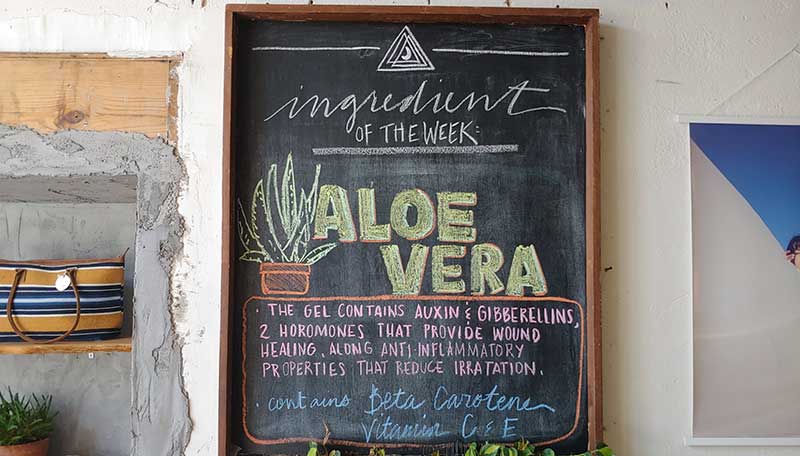 ingredient
OF THE WEEK:
ALOE
VERA
· THE GEL CONTAINS AUXIN & GIBBERELLINS,
2 HOROMONES THAT PROVIDE WOUND
HEALING, ALONG ANTI-INFLAMMATORY
PROPERTIES THAT REDUCE IRRATATION.
· contains Beta Carotene
Vitamin C & E